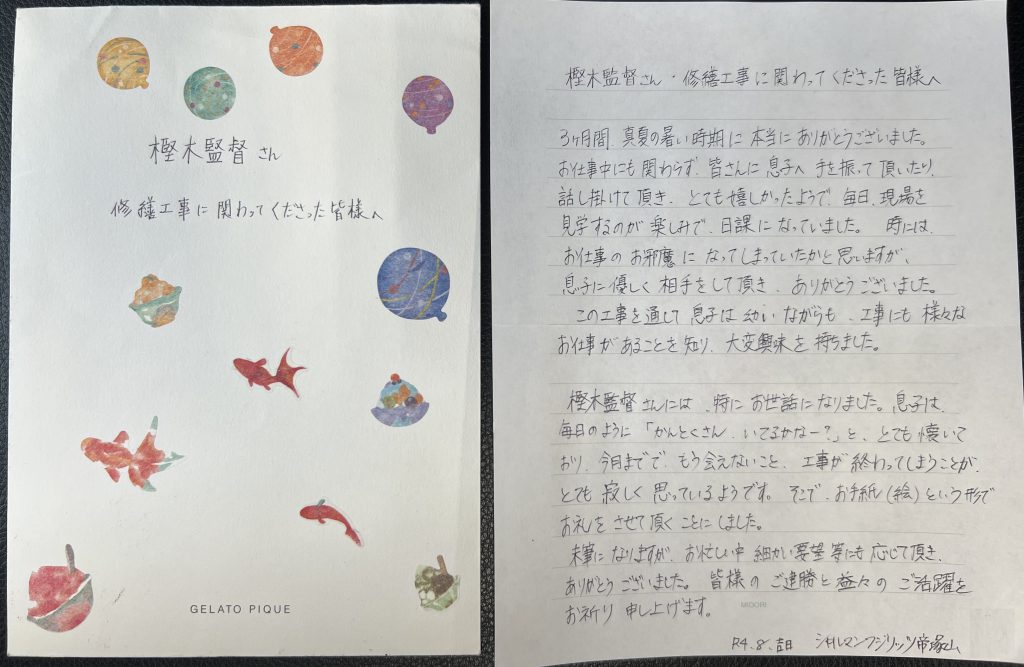 樫木監督さん
修繕工事に関わってくださった皆様へ
GELATO PIQUE
樫木監督さん・修繕工事に関わってくださった皆様へ
3ヶ月間、真夏の暑い時期に本当にありがとうございました。
お仕事中にも関わらず、皆さんに息子へ手を振って頂いたり、
話し掛けて頂き、とても嬉しかったようで、毎日、現場を
見学するのが楽しみで、日課になっていました。 時には、
お仕事のお邪魔になってしまっていたかと思いますが、
息子に優しく相手をして頂き、ありがとうございました。
この工事を通して息子は幼いながらも、工事にも様々な
お仕事があることを知り、大変興味を持ちました。
樫木監督さんには、特にお世話になりました。息子は、
毎日のように「かんとくさん、いてるかなー?」と、とても懐いて
おり、今月までで、もう会えないこと、工事が終わってしまうことが、
とても寂しく思っているようです。そこで、お手紙(絵)という形で
お礼をさせて頂くことにしました。
末筆になりますが、お忙しい中 細かい要望等にも応じて頂き、
ありがとうございました。 皆様のご健勝と益々のご活躍を
お祈り申し上げます。
MIDORI
R4.8.吉日 シャルマンフジリッツ帝塚山